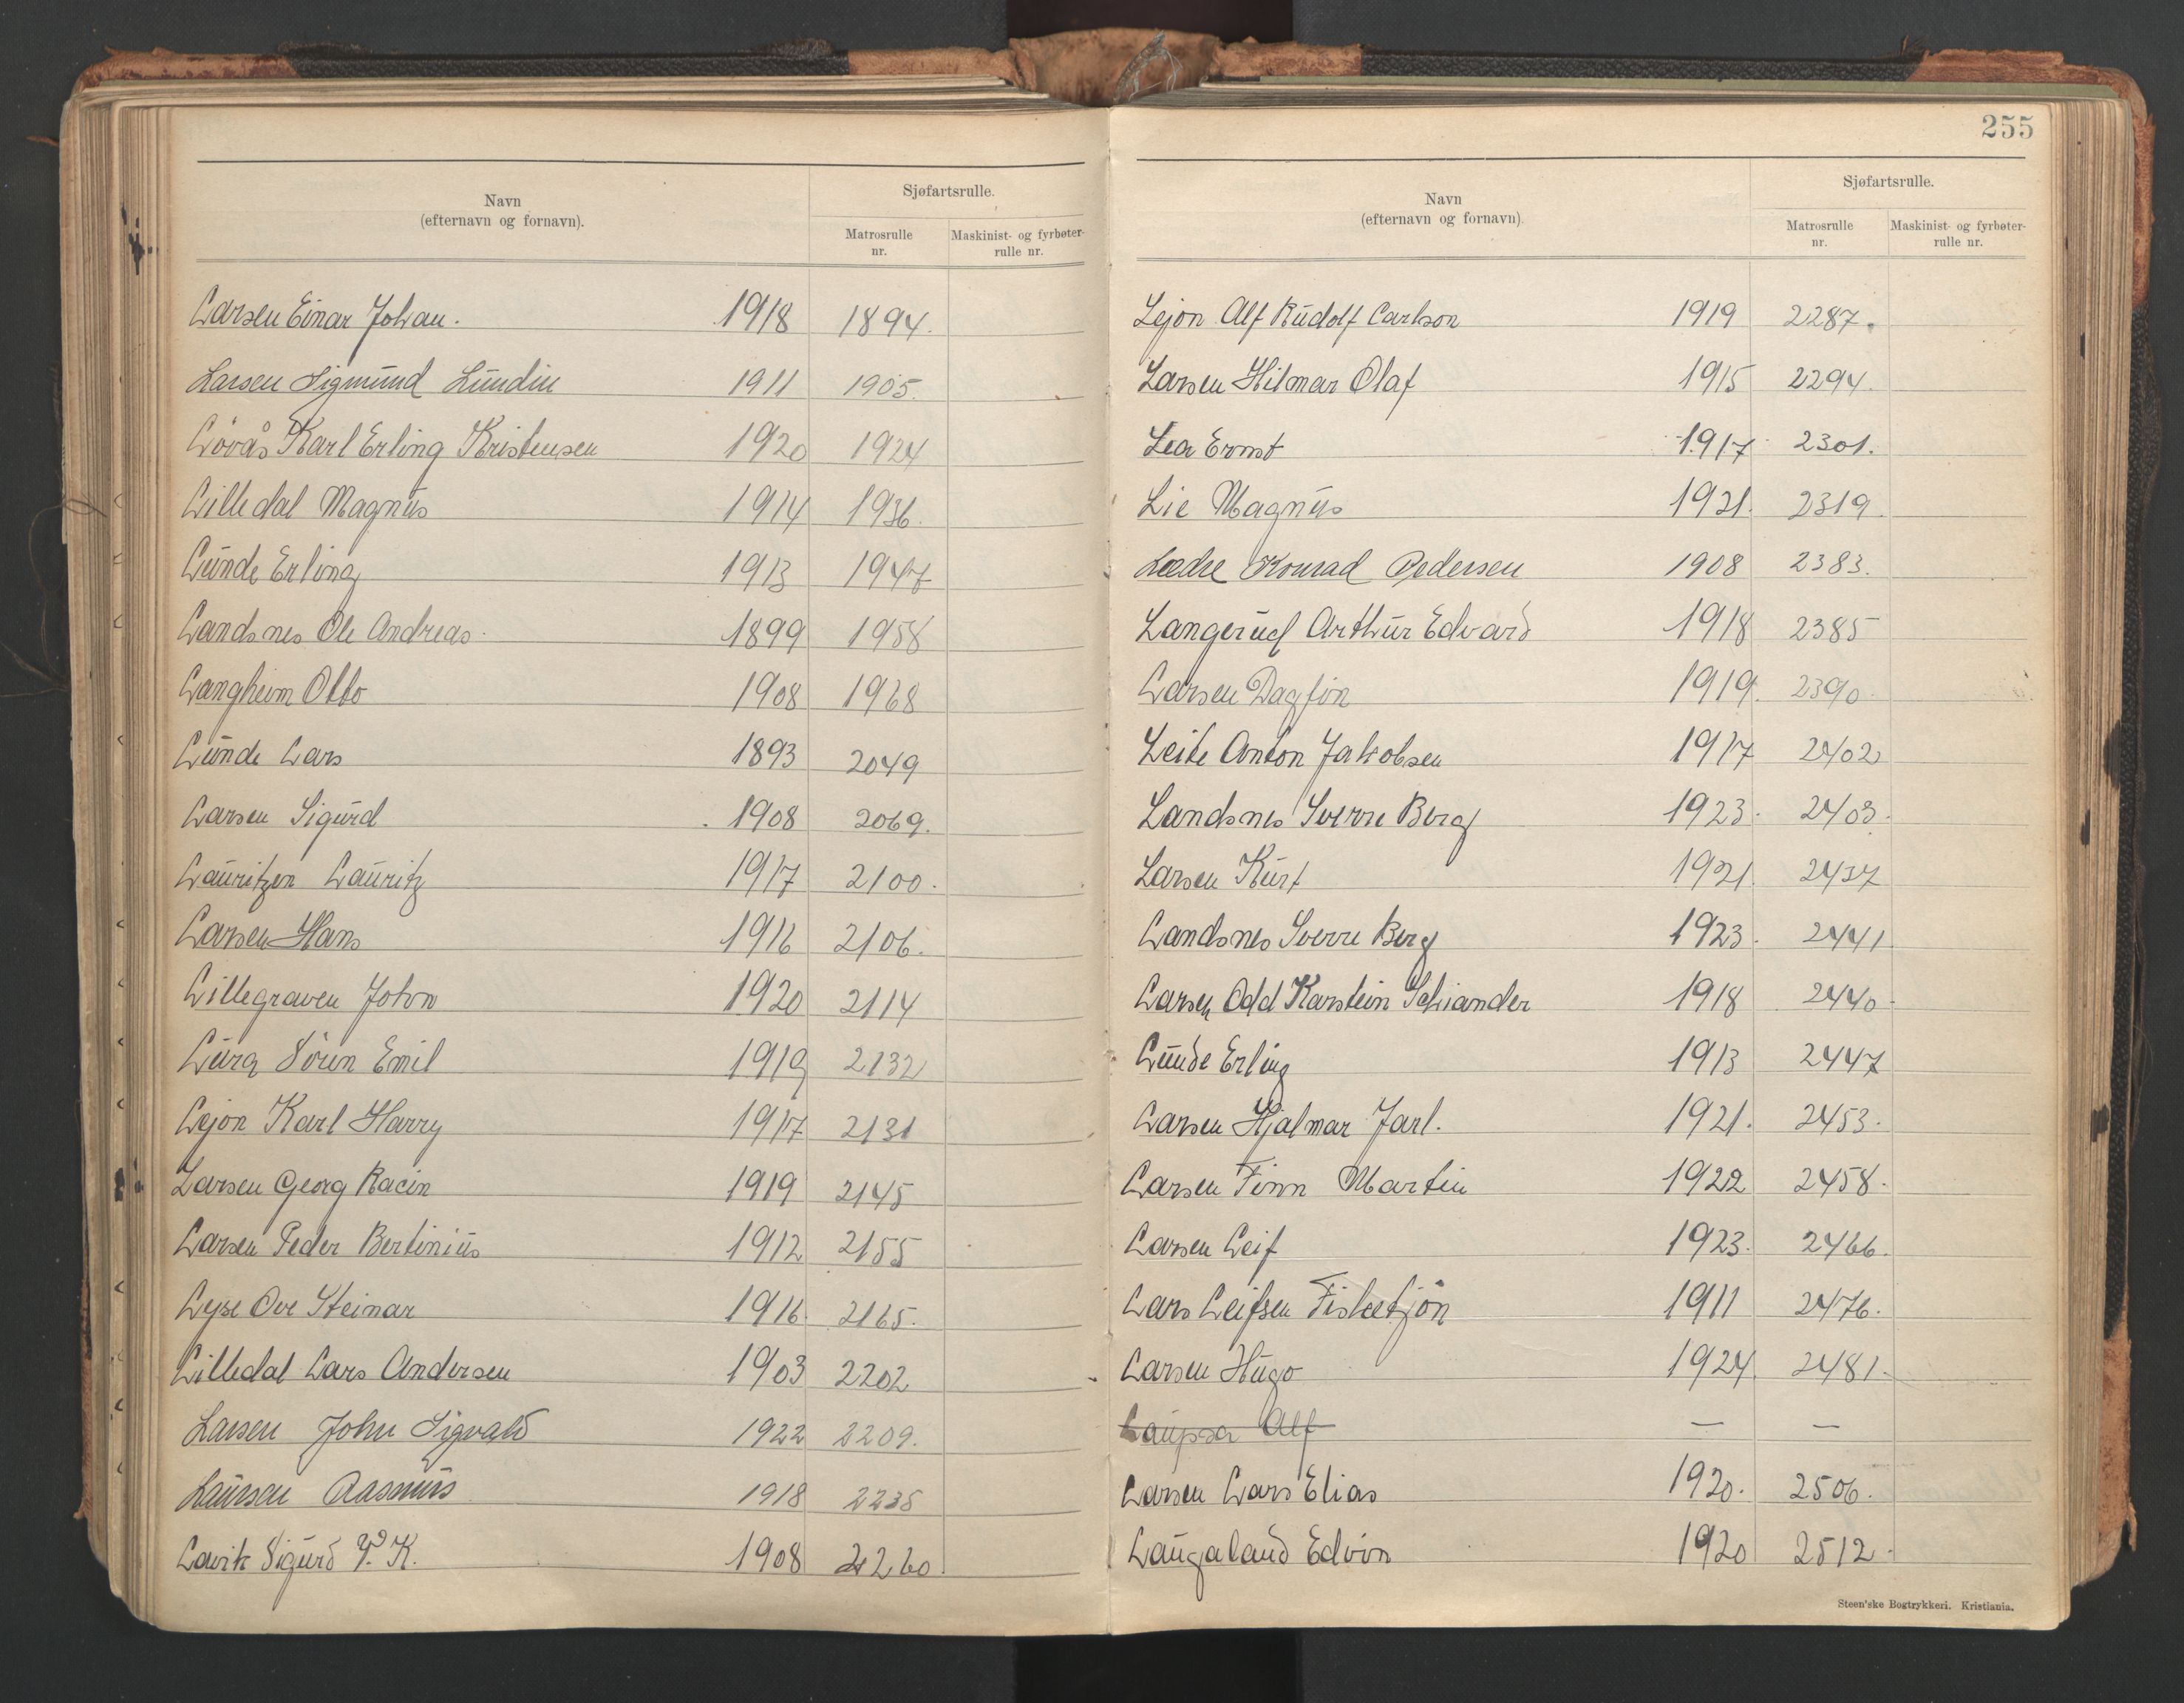 Navn
(efternavn og fornavn).
Sjøfartsrulle.
Matrosrulle nr.
Maskinist- og fyrbøter-rulle nr.
Larsen Einar Johan. 1918 1894.
Larsen Sigmund Lundin 1911 1905.
Lövås Karl Erling Kristensen 1920 1924
Lilledal Magnus 1914 1936.
Lunde Erling 1913 1947
Landsnes Ole Andreas 1899 1958
Langheim Otto 1908 1968
Lunde Lars 1893 2049
Larsen Sigurd 1908 2069.
Lauritzen Lauritz 1917 2100.
Larsen Hans 1916 2106.
Lillegraven John 1920 2114
Lura Sören Emil 1919 2132
Lejon Karl Harry 1917 2131
Larsen Georg Racin 1919 2145
Larsen Peder Bertinius 1912 2155
Lyse Ove Steinar 1916 2165.
Lilledal Lars Andersen 1903 2202
Larsen John Sigvald 1922 2209.
Laursen Rasmus 1918 2235
Lavik Sigurd P. K. 1908 2260.
255
Navn
(efternavn og fornavn)
Sjøfartsrulle.
Matrosrulle nr.
Maskinist- og fyrbøter-rulle nr.
Lejon Alf Rudolf Carlson 1919 2287.
Larsen Hilmar Olaf 1915 2294.
Lea Ernst 1917 2301.
Lie Magnus 1921. 2319.
Lædre Konrad Pedersen 1908 2383.
Langerud Arthur Edvard 1918 2385
Larsen Dagfin 1919. 2390
Leite Anton Jakobsen 1917 2402
Landsnes Sverre Berg 1923. 2403.
Larsen Kurt 1921. 2437
Landsnes Sverre Berg 1923. 2441
Larsen Odd Karstein Schiander 1918 2440
Lunde Erling 1913 2447
Larsen Hjalmar Jarl. 1921. 2453.
Larsen Finn Martin 1922 2458.
Larsen Leif 1923. 2466.
Lars Leifsen Fisketjön 1911 2476.
Larsen Hugo 1924. 2481.
Alf — —
Larsen Lars Elias 1920. 2506.
Laugaland Edvin 1920 2512.
Steen'ske Bogtrykkeri. Kristiania.